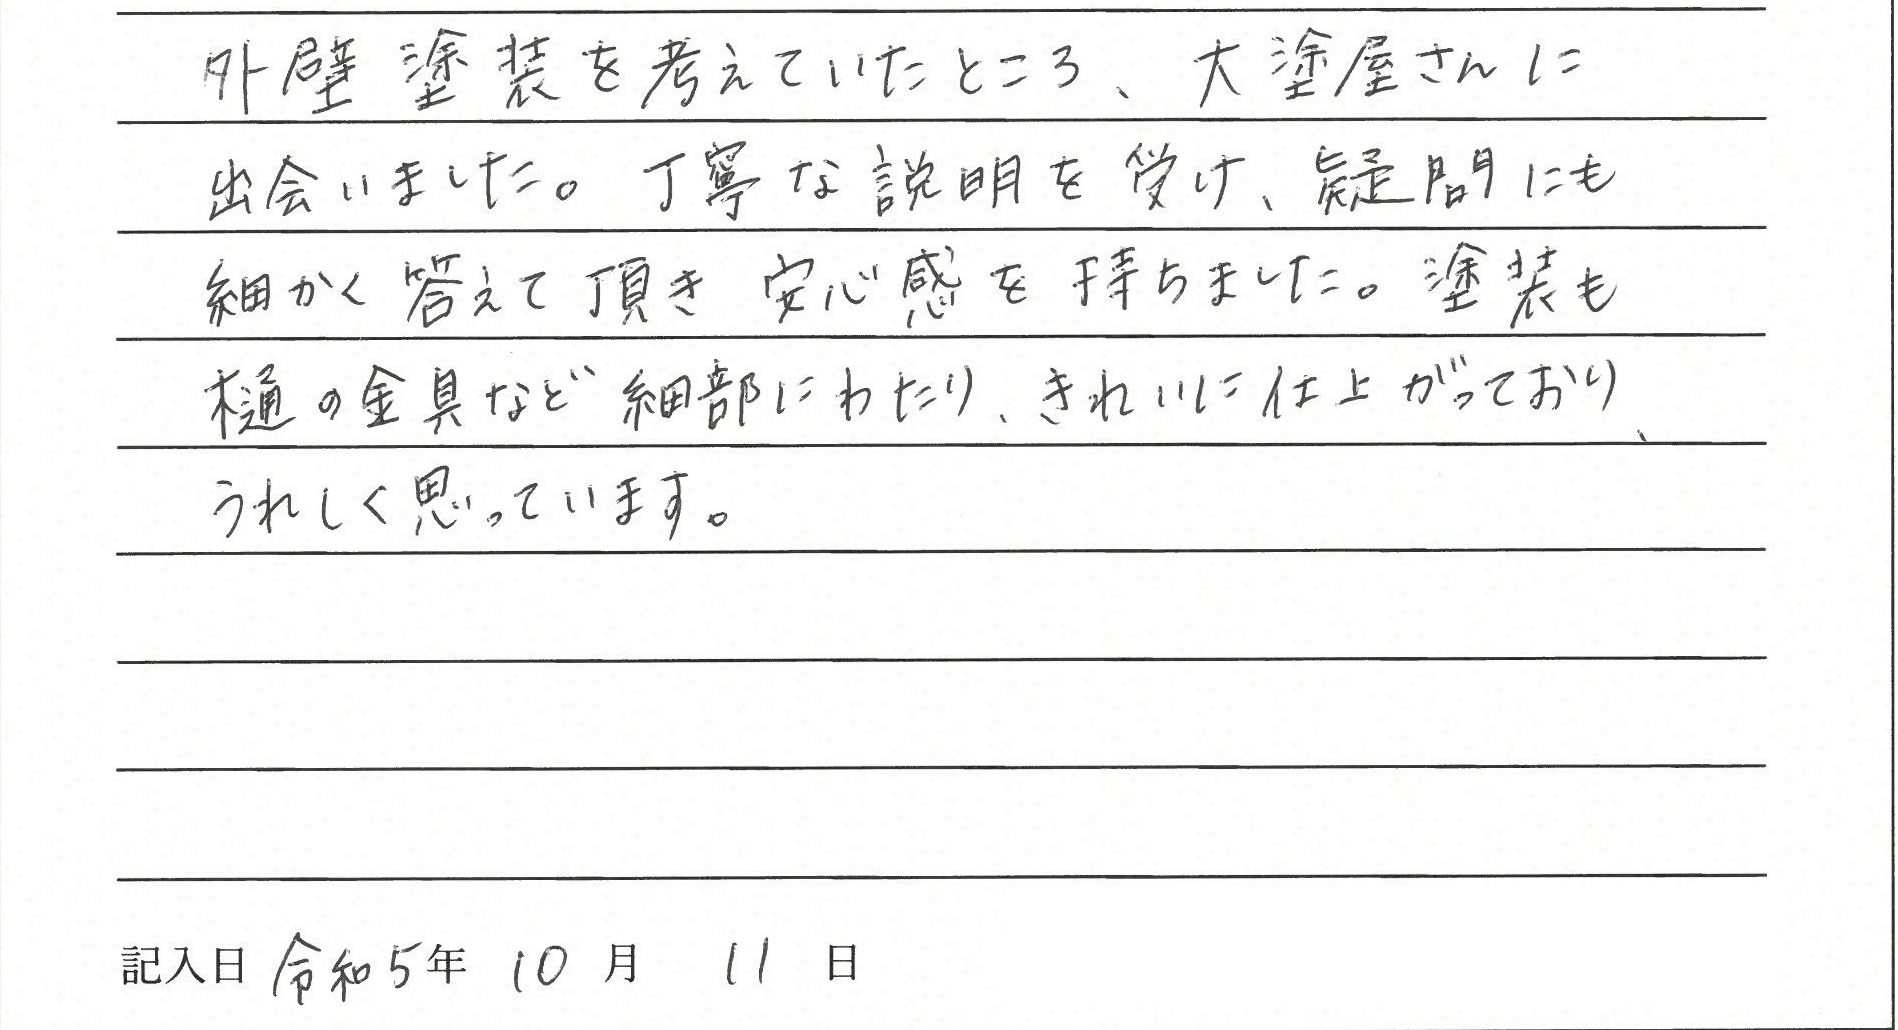 外壁塗装を考えていたところ、大塗屋さんに
出会いました。丁寧な説明を受け、疑問にも
細かく答えて頂き安心感を持ちました。塗装も
樋の金具など細部にわたり、きれいに仕上がっており、
うれしく思っています。
記入日 令和5年 10月 11日